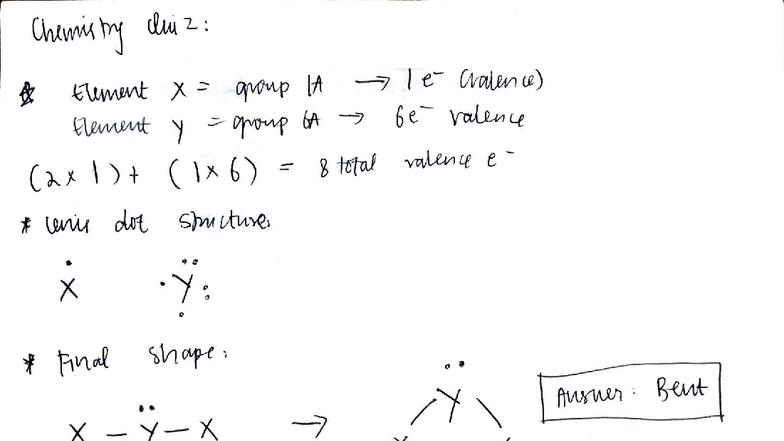 Chemistry Quiz:
* Element X = group 1A → 1 e⁻ (valence)
Element Y = group 6A → 6e⁻ valence
(2 x 1) + (1 x 6) = 8 total valence e⁻
* Lewis dot structure:
X Y
* Final shape:
Answer: Bent
X – Y – X → Y